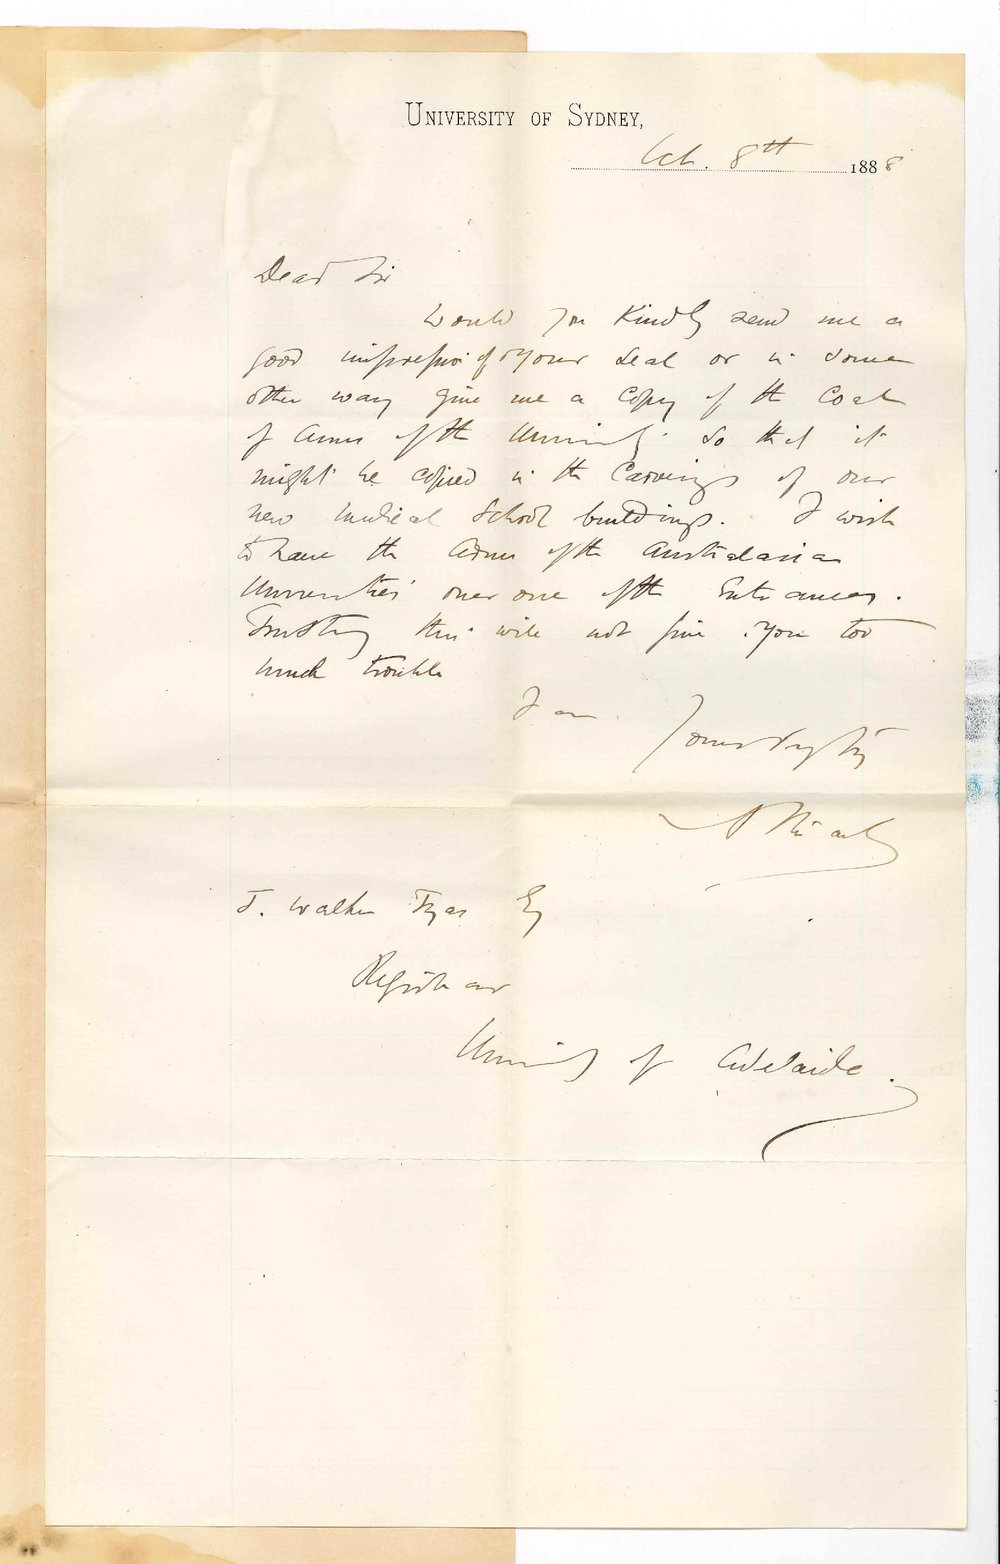 UNIVERSITY OF SYDNEY,
Oct. 8th 1888
Dear Sir
Would you kindly send me a
good impression of your Seal or in some
other way give me a copy of the Coat
of Arms of the University so that it
might be copied in the Carvings of our
new Medical School buildings. I wish
to have the Arms of the Australasian
Universities over one of the Entrances.
Trusting this will not give you too
much trouble
I am
Yours Truly
J. Walter Tyas Esq
Registrar
University of Adelaide.